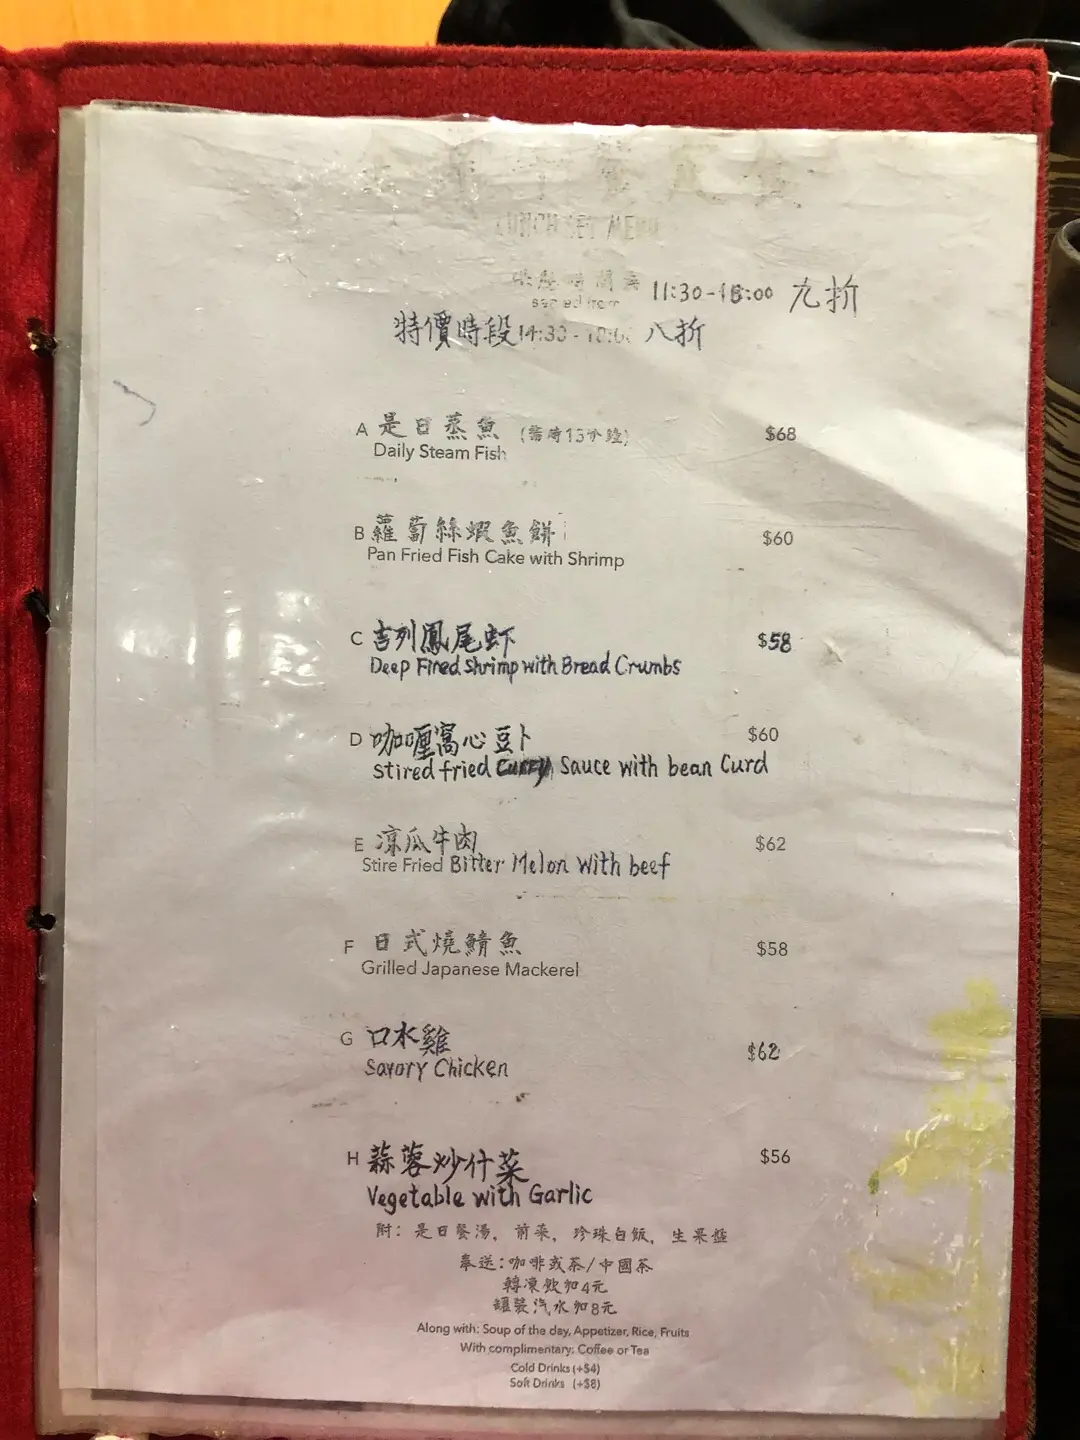 LUNCH SET MENU
served from 11:30-18:00 九折
特價時段14:30-18:00 八折
A 是日蒸魚 (需時15分鐘) $68
Daily Steam Fish
B 蘿蔔絲蝦魚餅 $60
Pan Fried Fish Cake with Shrimp
C 吉列鳳尾虾 $58
Deep Fired Shrimp with Bread Crumbs
D 咖喱窩心豆卜 $60
Stired fried Curry Sauce with bean Curd
E 凉瓜牛肉 $62
Stire Fried Bitter Melon With beef
F 日式燒鯖魚 $58
Grilled Japanese Mackerel
G 口水雞 $62
Savory Chicken
H 蒜蓉炒什菜 $56
Vegetable with Garlic
附：是日餐湯，前菜，珍珠白飯，生果盤
奉送：咖啡或茶/中國茶
轉凍飲加4元
罐裝汽水加8元
Along with: Soup of the day, Appetizer, Rice, Fruits
With complimentary: Coffee or Tea
Cold Drinks (+$4)
Soft Drinks (+$8)